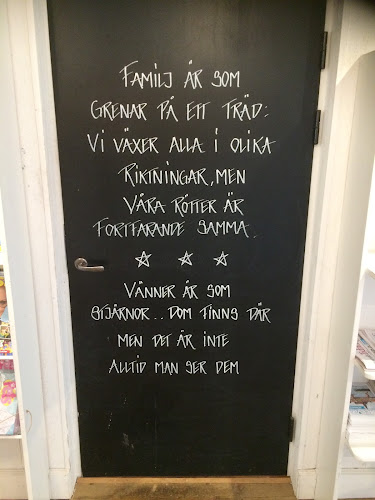 FAMILJ ÄR SOM
GRENAR PÅ ETT TRÄD:
VI VÄXER ALLA I OLIKA
RIKTNINGAR, MEN
VÅRA RÖTTER ÄR
FORTFARANDE SAMMA.
☆ ☆ ☆
VÄNNER ÄR SOM
STJÄRNOR.. DOM FINNS DÄR
MEN DET ÄR INTE
ALLTID MAN SER DEM